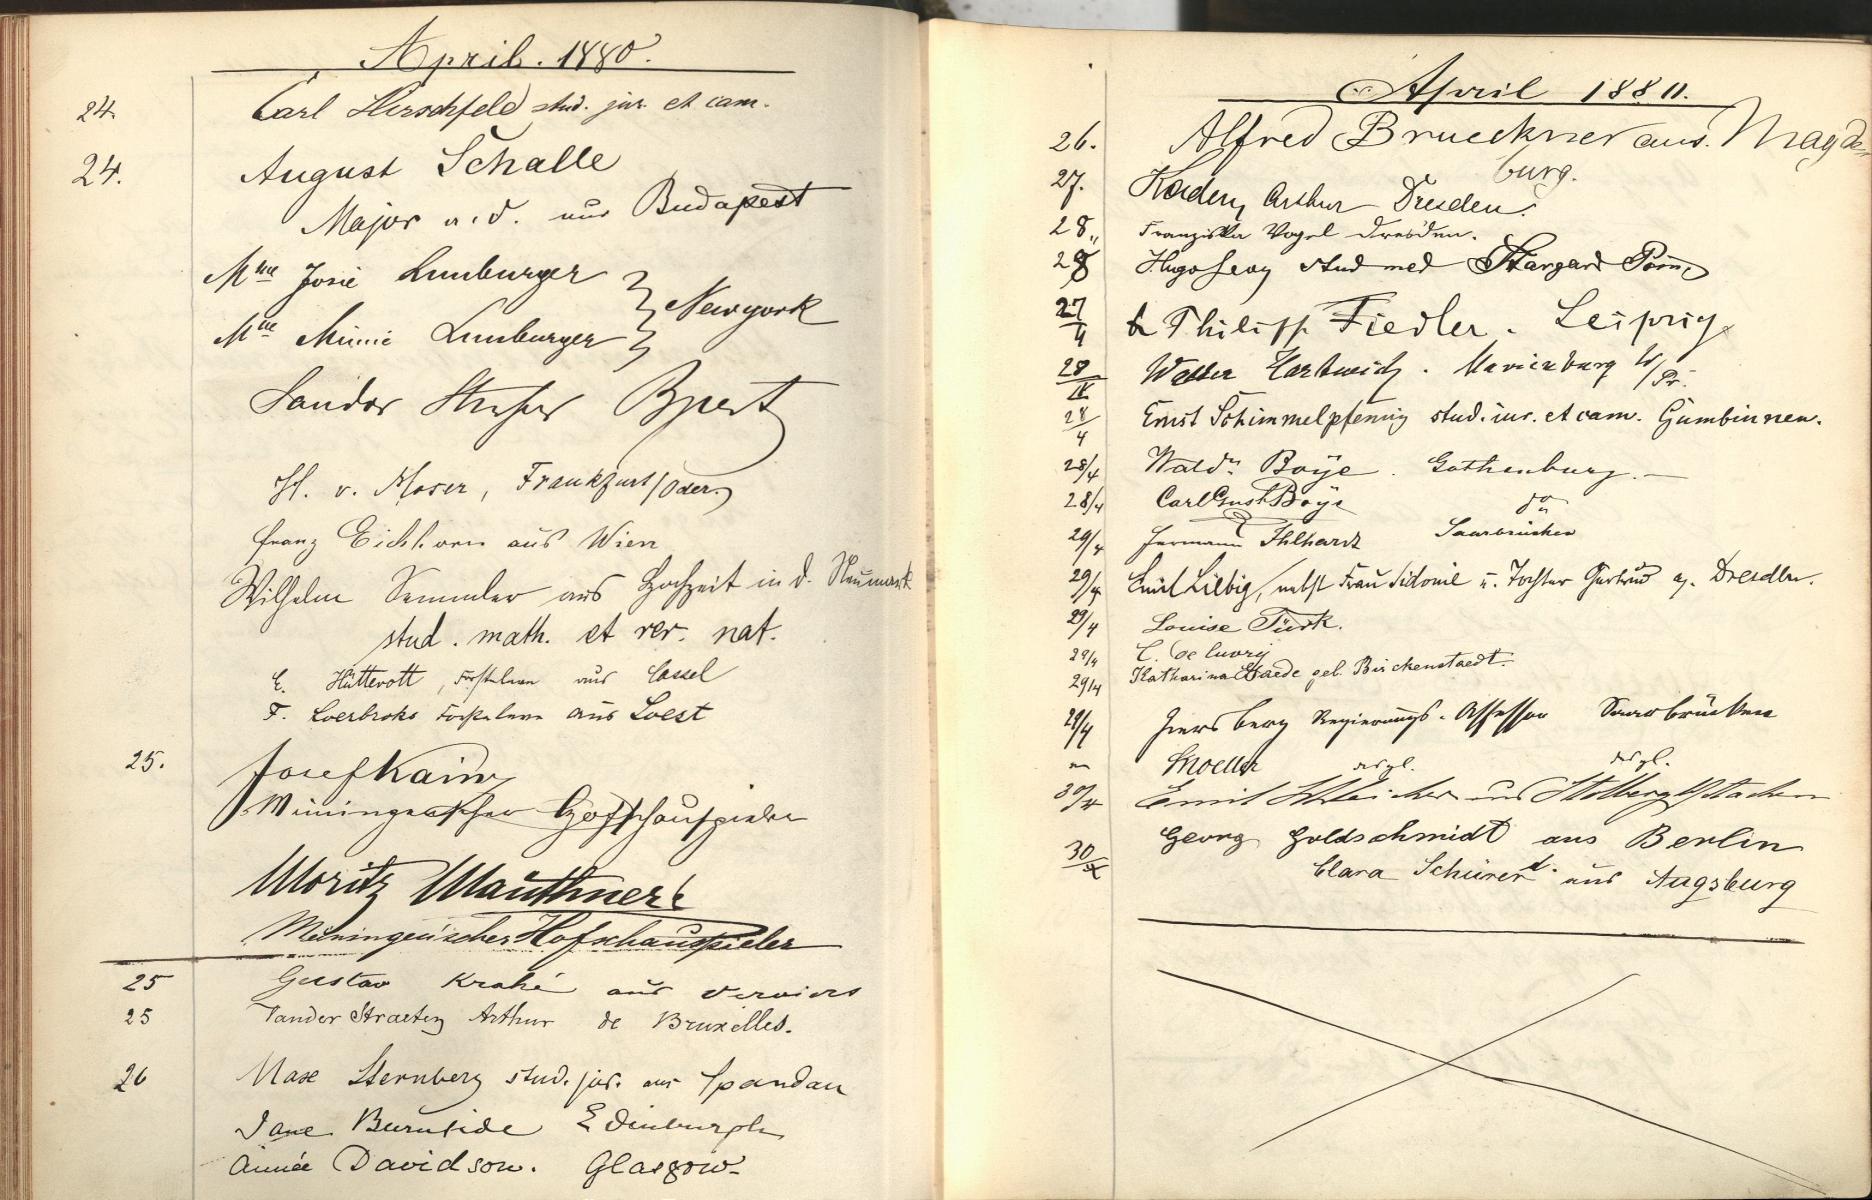 April. 1880.
24. Carl Hirschfeld stud. jur. et cam.
24. August Schalle
Major a. d. aus Budapest
Mme Josie Lunburger
Newyork
Mlle Minnie Lunburger
Sandor Bpest
H. v. Moser, Frankfurt/Oder.
Franz Eichhorn aus Wien
Wilhelm Semmler aus Hochzeit in d. Neumark
stud. math. et rer. nat.
E. Hütterott, aus Cassel
F. Loerbroks aus Soest
25. Josef Kainz
Meiningenscher Hofschauspieler
Moritz Mauthner
Meiningen'scher Hofschauspieler
25 Gustav Krahé aus Verviers
25 Vander Straeten Arthur de Bruxelles.
26 Max Sternberg stud. jur. aus Spandau
Jane Burnside Edinburgh
Aimée Davidson. Glasgow
April 1880.
26. Alfred Brueckner aus Magde-
burg.
27. Arthur Dresden.
28. Franziska Vogel Dresden.
28 Hugo Levy stud med Stargard Pom.
27/4 Philipp Fiedler. Leipzig
28/IV Walter Hartwich. Marienburg W/Pr.
28/4 Ernst Schimmelpfennig stud. iur. et cam. Gumbinnen.
28/4 Wald. Boÿe. Gothenburg.
28/4 Carl Gust Boÿe do
29/4 Hermann Ihlhardt Saarbrücken
29/4 Emil Liebig, nebst Frau Sidonie u. Tochter Gertrud a. Dresden.
29/4 Louise Türk.
29/4 C. de
29/4 Katharina geb. Birckenstaedt.
29/4 Regierungs-Assessor Saarbrücken
" Moeller desgl. desgl.
30/4 Emil Schleicher aus Stolberg b/Aachen
30/4 Georg Goldschmidt aus Berlin
Clara Schürer aus Augsburg